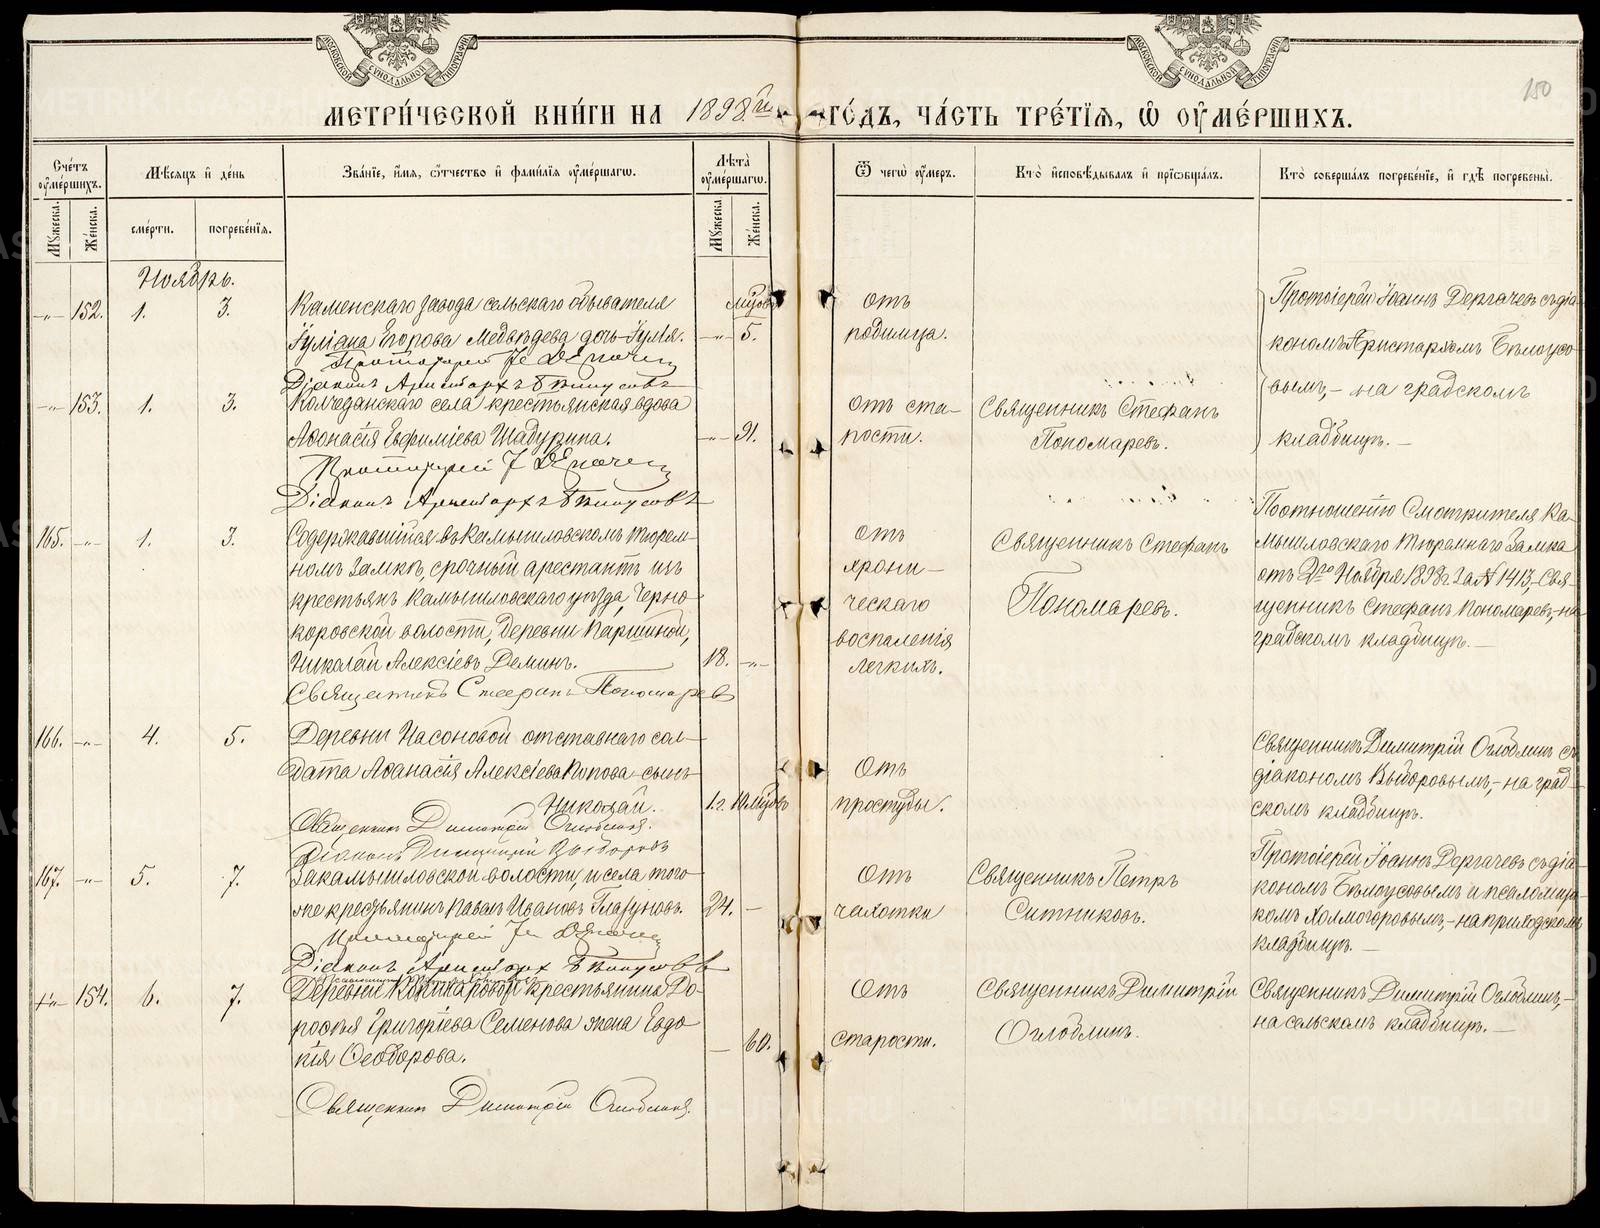 МОСКОВСКОЙ СѴНОДАЛЬНОЙ ТИПОГРАФІИ
МОСКОВСКОЙ СѴНОДАЛЬНОЙ ТИПОГРАФІИ
150
МЕТРИ́ЧЕСКОЙ КНИ́ГИ НА 1898й ГО́ДЪ, ЧА́СТЬ ТРЕ́ТІѦ, Ѡ ОУ҆МЕ́РШИХЪ.
Сче́тъ оу҆ме́ршихъ.
Мѣ́сяцъ и҆ де́нь
Зва́нїе, и҆́мѧ, ѻ҆́тчество и҆ фамилїѧ оу҆ме́ршагѡ.
Лѣ́та оу҆ме́ршагѡ.
Ѿ чегѡ̀ оу҆́меръ.
Кто̀ и҆сповѣ́дывалъ и҆ прїѡбща́лъ.
Кто̀ соверша́лъ погребе́нїе, и҆ гдѣ̀ погребены̀.
Мꙋ́жеска.
Же́нска.
сме́рти.
погребе́нїѧ.
Мꙋ́жеска.
Же́нска.
Ноябрь.
-„- 152. 1. 3.
Каменскаго завода сельскаго обывателя
Іуліана Егорова Медвѣдева дочь Іулія.
Протоіерей
Діаконъ Аристархъ Бѣлоусовъ
-„- 5.
отъ
родимца.
Протоіерей Іоаннъ Дергачевъ съ діа-
кономъ Аристархомъ Бѣлоусо-
вымъ, - на градскомъ
кладбищѣ. -
-„- 153. 1. 3.
Колчеданскаго села крестьянская вдова
Афонасія Евфиміева Шадурина.
Протоіерей
Діаконъ Аристархъ Бѣлоусовъ
-„- 91.
отъ ста-
рости.
Священникъ Стефанъ
Пономаревъ.
165. -„- 1. 3.
Содержавшійся въ Камышловскомъ тюрем-
номъ Замкѣ, срочный арестантъ изъ
крестьянъ Камышловскаго уѣзда, Черно-
коровской волости, Деревни Паршиной,
Николай Алексіевъ Деминъ.
Священникъ Стефанъ Пономаревъ
18. -„-
отъ
хрони-
ческаго
воспаленія
легкихъ.
Священникъ Стефанъ
Пономаревъ.
По отношенію Смотрителя Ка-
мышловскаго Тюремнаго Замка
отъ 2го Ноября 1898 г. за № 1413, Свя-
щенникъ Стефанъ Пономаревъ, на
градскомъ кладбищѣ. -
166. -„- 4. 5.
Деревни Насоновой отставнаго сол-
дата Афанасія Алексіева Попова сынъ
Николай.
Священникъ Димитрій Оглоблинъ.
Діаконъ Димитрій Выборовъ
1 г.
Отъ
простуды.
Священникъ Димитрій Оглоблинъ съ
діакономъ Выборовымъ, - на град-
скомъ кладбищѣ.
167. -„- 5. 7.
Закамышловской волости, и села того
же крестьянинъ Павелъ Ивановъ Глазуновъ.
Протоіерей
Діаконъ Аристархъ Бѣлоусовъ
24. -
Отъ
чахотки
Священникъ Петръ
Ситниковъ.
Протоіерей Іоаннъ Дергачевъ съ діа-
кономъ Бѣлоусовымъ и псаломщи-
комъ Холмогоровымъ, - на приходскомъ
кладбищѣ. -
154. 6. 7.
Деревни Кокшаровой крестьянина До-
рофея Григоріева Семенова жена Евдо-
кія Ѳеодорова.
Священникъ Димитрій Оглоблинъ.
- 60.
Отъ
старости.
Священникъ Димитрій
Оглоблинъ.
Священникъ Димитрій Оглоблинъ, -
на сельскомъ кладбищѣ. -
METRIKI.GASO-URAL.RU